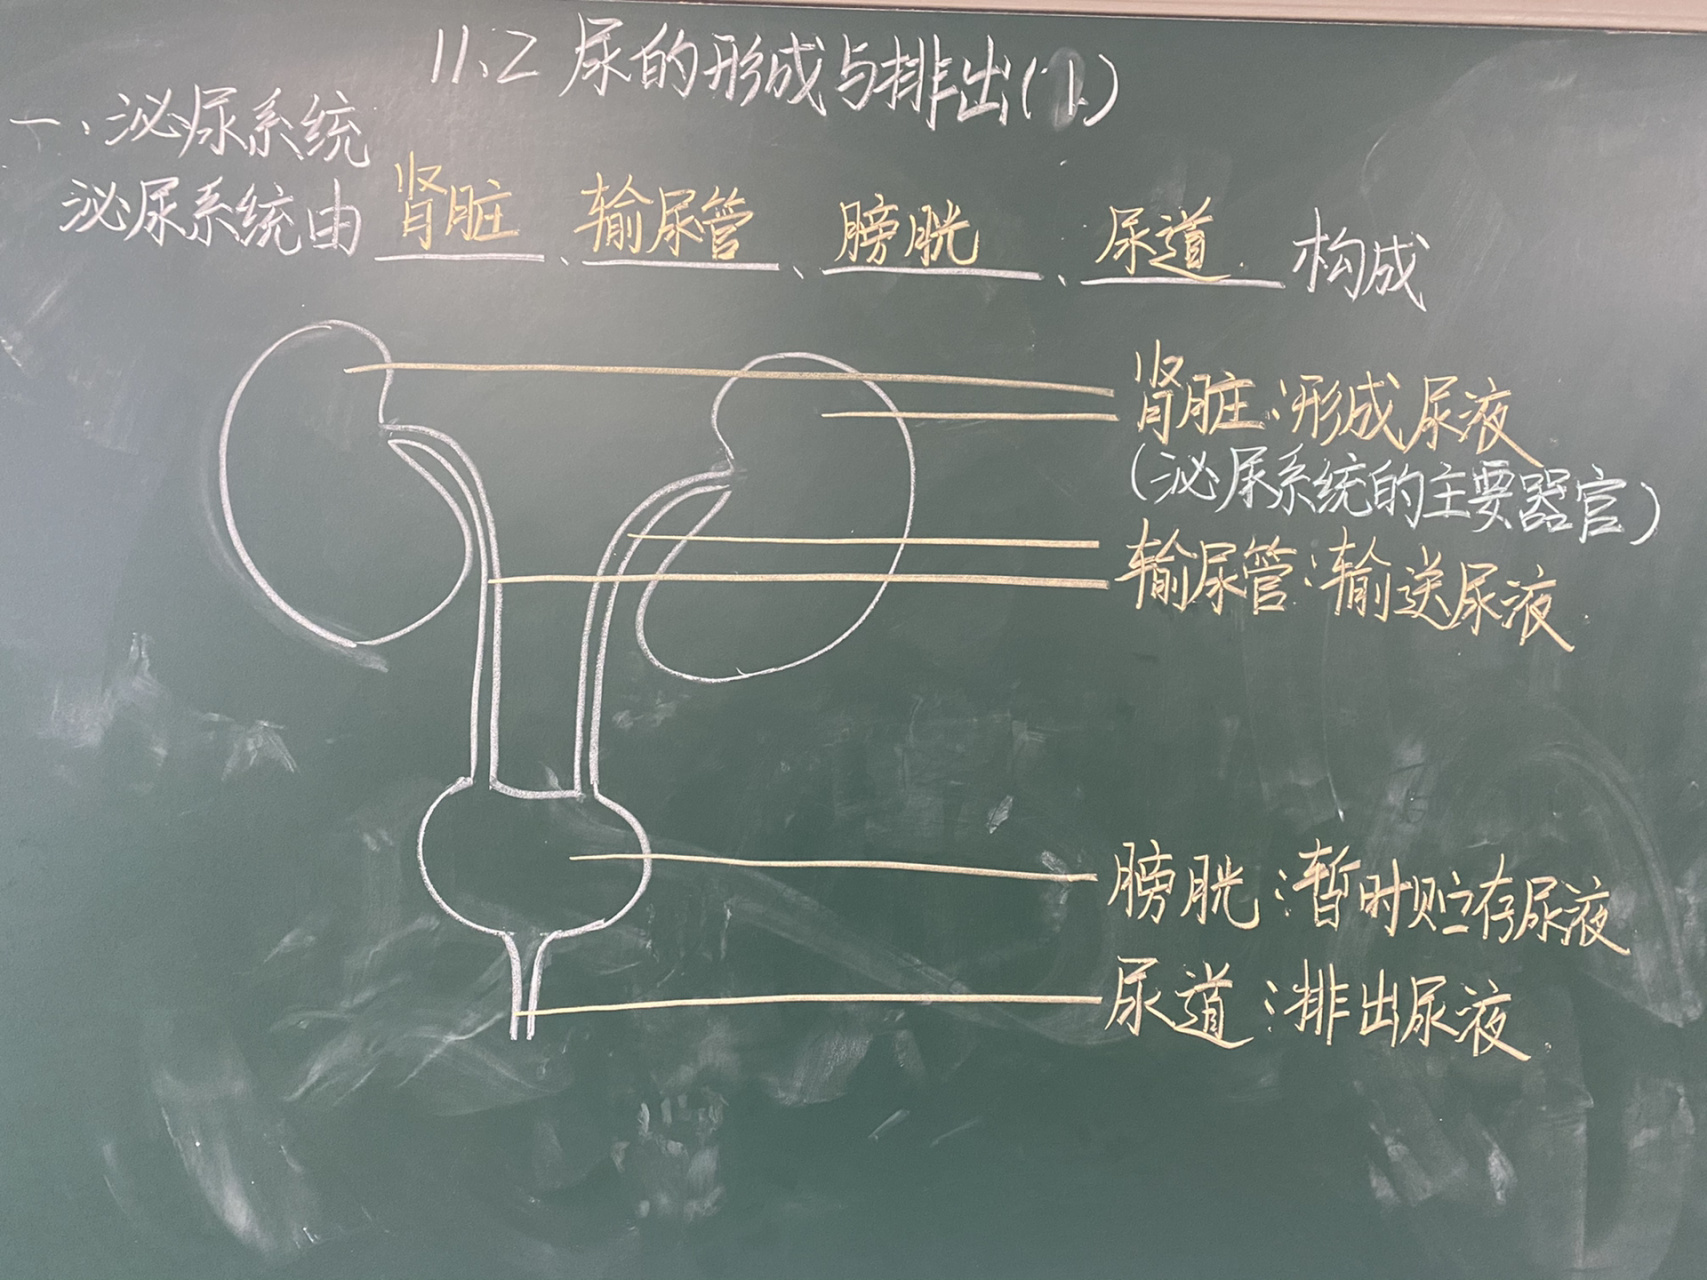 11.2 尿的形成与排出(1)
一、泌尿系统
泌尿系统由 肾脏 、 输尿管 、 膀胱 、 尿道 构成
肾脏：形成尿液
(泌尿系统的主要器官)
输尿管：输送尿液
膀胱：暂时贮存尿液
尿道：排出尿液